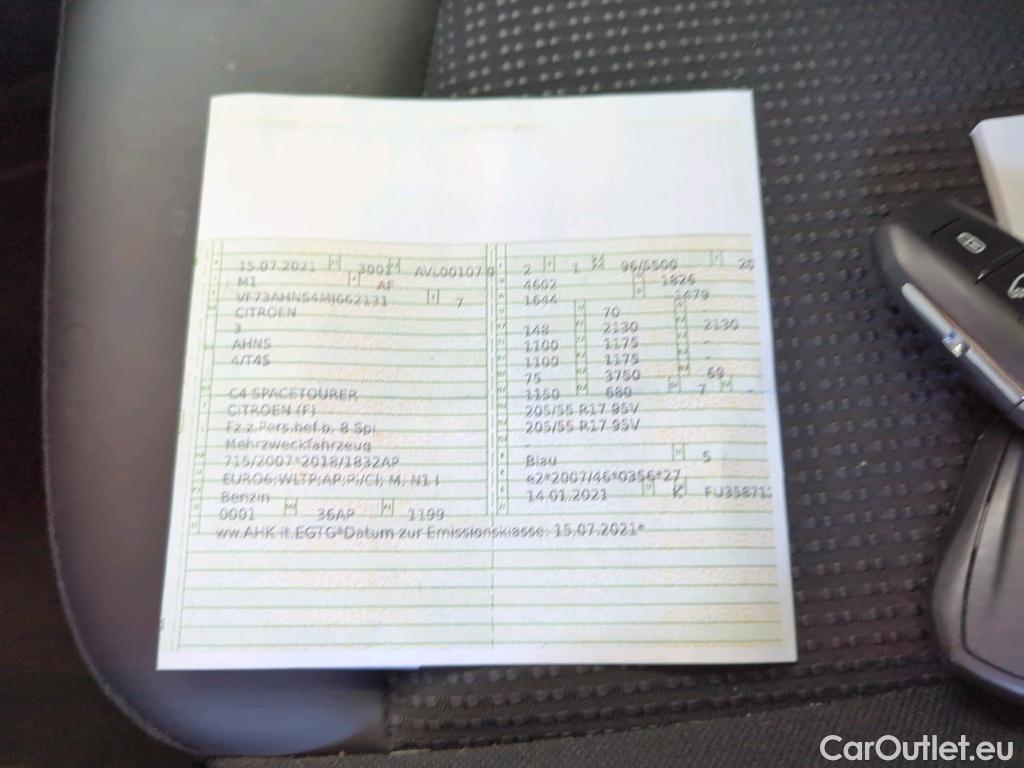 15.07.2021 3001 AVL00107 0
M1 AF
7
CITROEN
3
AHNS
4/T4S
C4 SPACETOURER
CITROEN (F)
Fz.z.Pers.bef.b. 8 Spl.
Mehrzweckfahrzeug
715/2007*2018/1832AP
EURO6;WLTP;AP;PI/CI; M, N1 I
Benzin
0001 36AP 1199
ww.AHK lt.EGTG*Datum zur Emissionsklasse: 15.07.2021*
2 1 96/5500
4602 1826
1644 1479
70 -
148 2130 2130
1100 1175 -
1100 1175 -
75 3750 69
1150 680 7 -
205/55 R17 95V
205/55 R17 95V
-
Blau 5
e2*2007/46*0356*27
14.01.2021 K
CarOutlet.eu